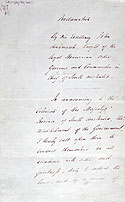 Proclamation
By His Excellency John
Hindmarsh, Knight of the
Royal Hanoverian Order,
Governor and Commander in
Chief of South Australia
In announcing to the
Colonists of His Majesty's
Province of South Australia, the
establishment of the Government,
I hereby call upon them to
conduct themselves on all
occasions with order and
quietness, duly to respect the
laws, and by a